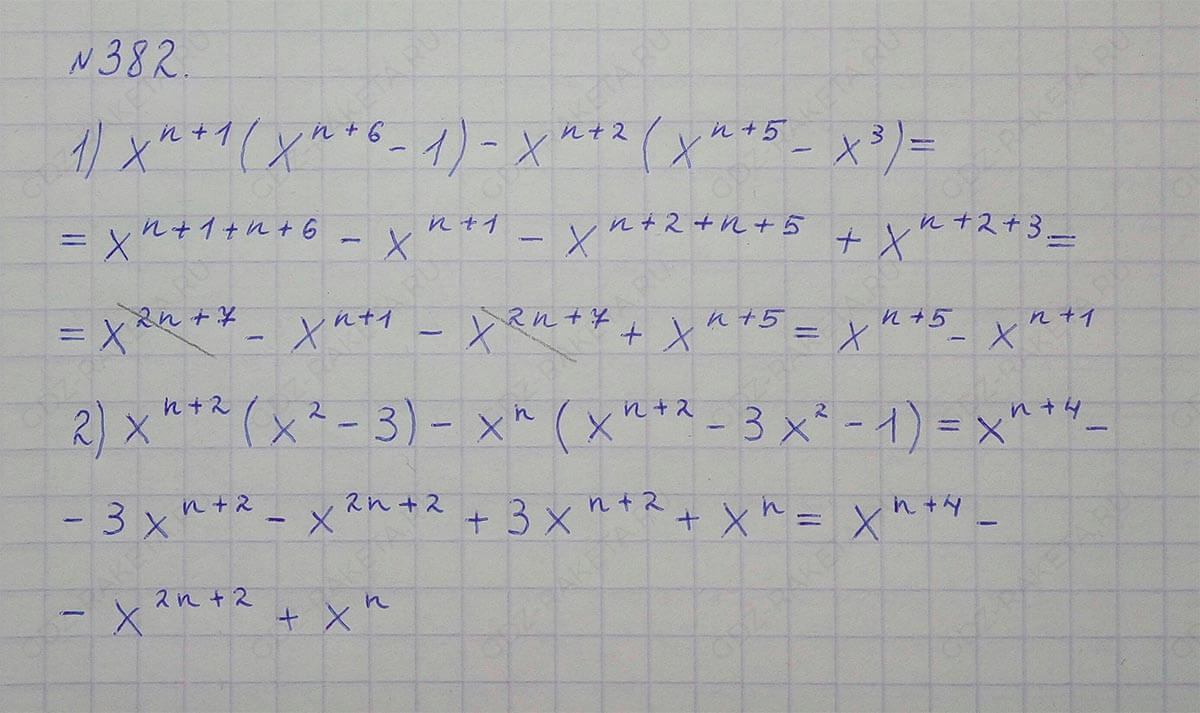 №382.
1) x^{n+1}(x^{n+6} - 1) - x^{n+2}(x^{n+5} - x^3) =
= x^{n+1+n+6} - x^{n+1} - x^{n+2+n+5} + x^{n+2+3} =
= x^{2n+7} - x^{n+1} - x^{2n+7} + x^{n+5} = x^{n+5} - x^{n+1}
2) x^{n+2}(x^2 - 3) - x^n(x^{n+2} - 3x^2 - 1) = x^{n+4} -
- 3x^{n+2} - x^{2n+2} + 3x^{n+2} + x^n = x^{n+4} -
- x^{2n+2} + x^n